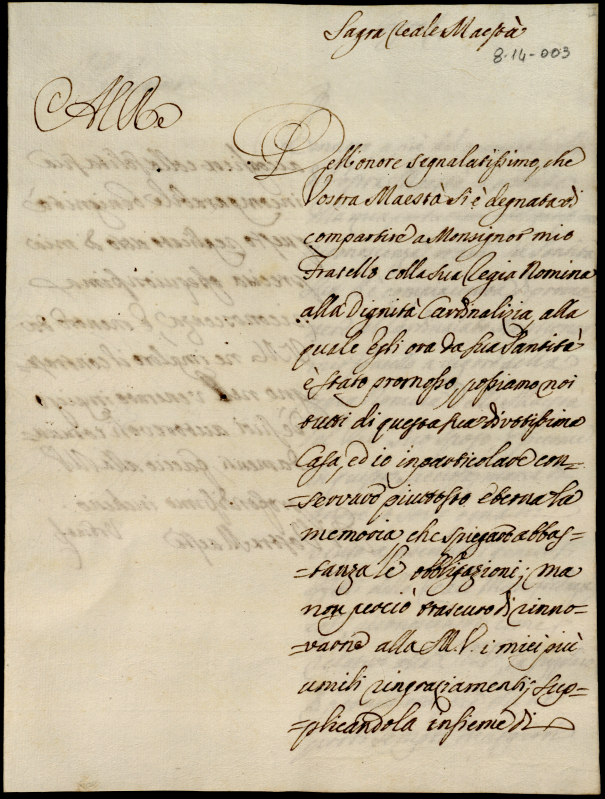 Sagra Reale Maestà
8-14-003
Al Re
Dell'onore segnalatissimo, che
Vostra Maestà si è degnata di
compartire a Monsignor mio
Fratello colla sua Regia Nomina
alla Dignità Cardinalizia, alla
quale Egli ora da Sua Santità
è stato promosso, possiamo noi
tutti di questa sua divotissima
Casa, ed io in particolare con-
=servare piuttosto eterna la
memoria, che spiegare abbas-
=tanza le obbligazioni; ma
non perciò trascuro di rinno-
=varne alla M. V. i miei più
umili ringraziamenti, sup-
=plicandola insieme di